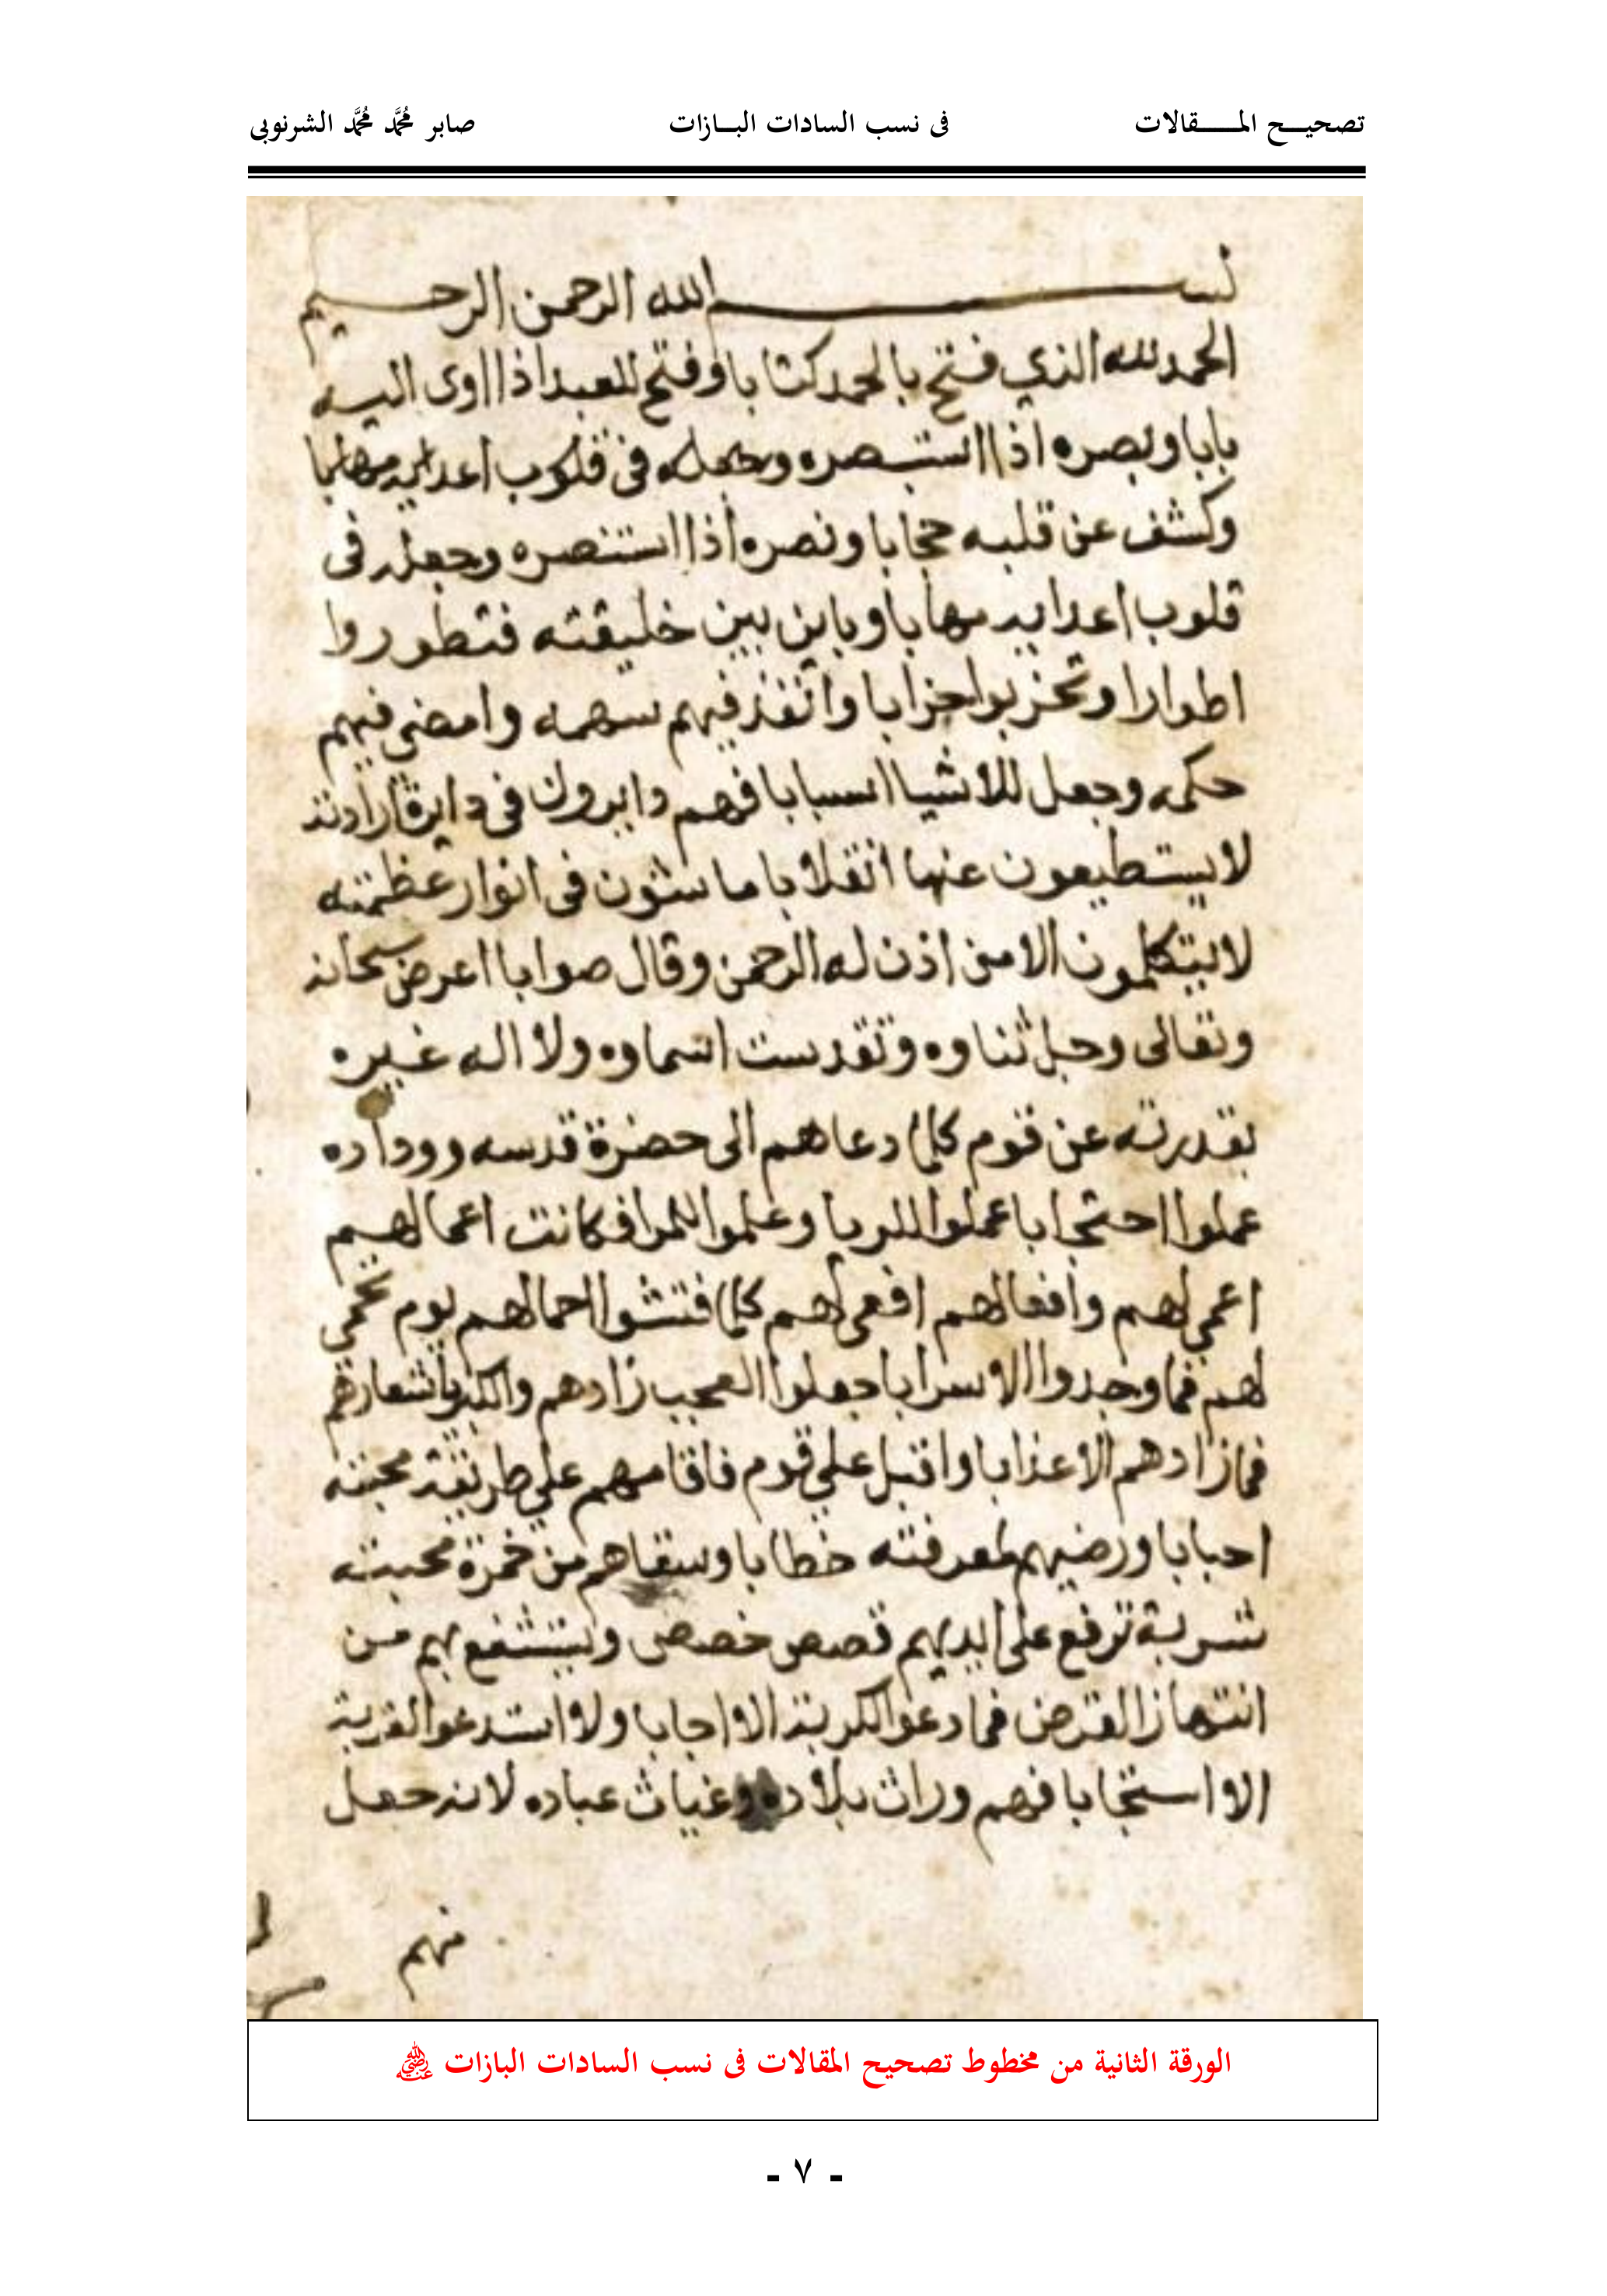 تصحيح المقالات فى نسب السادات البازات صابر محمد محمد الشرنوبى
بسم الله الرحمن الرحيم
الحمد لله الذي فتح بالحمد كتابا وفتح للعبد اذا اوى اليه
بابا وبصره اذا استبصره وجعله فى قلوب اعدايه مهابا
وكشف عن قلبه حجابا ونصره اذا استنصره وجعله فى
قلوب اعدايه مهابا وباين بين خليقته فتطوروا
اطوارا وتحزبوا احزابا وانفذ فيهم سهمه وامضى فيهم
حكمه وجعل للاشيا اسبابا فهم دايرون فى دايرة ارادته
لا يستطيعون عنها انقلابا ماشون فى انوار عظمته
لا يتكلمون الا من اذن له الرحمن وقال صوابا اعرض سبحانه
وتعالى وجل ثناوه وتقدست اسماوه ولا اله غيره
بقدرته عن قوم كلما دعاهم الى حضرة قدسه ووداده
عملوا احتجابا عملوا للريا وعلموا للمرا فكانت اعمالهم
اعمى لهم وافعالهم افعى لهم كلما فتشوا احمالهم يوم تحمى
لهم فما وجدوا الا سرابا جعلوا العجب زادهم والكبريا شعارهم
فما زادهم الا عذابا واقبل على قوم فاقامهم على طريقة محبته
احبابا ورضيهم لمعرفته خطابا وسقاهم من خمرة محبته
شربة ترفع على ايديهم قصص خصص ويستشفع بهم من
انتهاز القرص فما دعوا لكربة الا اجابا ولا استدعوا لقربة
الا استجابا فهم وراث بلاده وغياث عباده لانه جعل
منهم
الورقة الثانية من مخطوط تصحيح المقالات فى نسب السادات البازات رضي الله عنه
- ٧ -